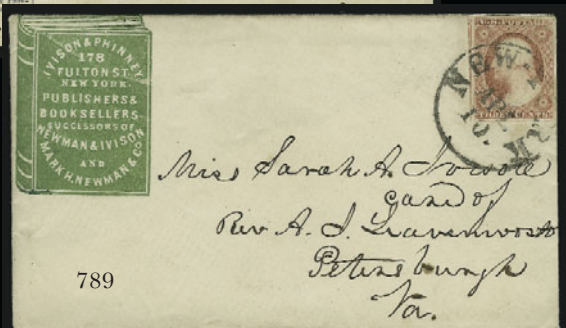 IVISON & PHINNEY
178
FULTON ST.
NEW YORK
PUBLISHERS &
BOOKSELLERS
SUCCESSORS OF
NEWMAN & IVISON
AND
MARK H. NEWMAN & CO.
U.S. POSTAGE
THREE CENTS
NEW-Y
Miss Sarah A.
care of
Rev. A. J. Leavenworth
Petersburgh
Va.
789